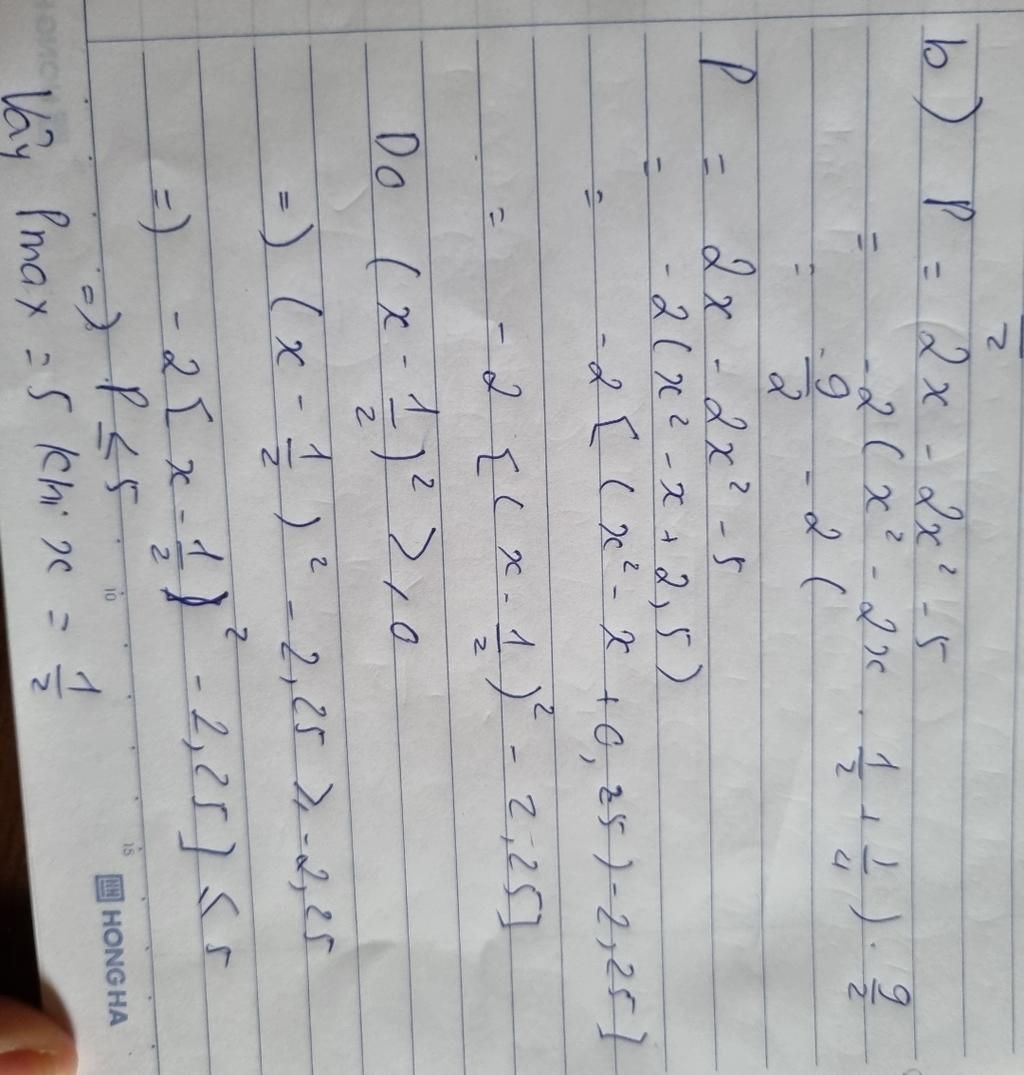 2
b) P = 2x - 2x² - 5
= -2(x² - 2x . 1/2 + 1/4) . 9/2
= -9/2 - 2(
P = 2x - 2x² - 5
= -2(x² - x + 2,5)
= -2[(x² - x + 0,25) - 2,25]
= -2[(x - 1/2)² - 2,25]
Do (x - 1/2)² ≥ 0
=) (x - 1/2)² - 2,25 ≥ -2,25
=) -2[x - 1/2)² - 2,25] ≤ 5
=) P ≤ 5
Vậy Pmax = 5 khi x = 1/2
10
15
HONG HA